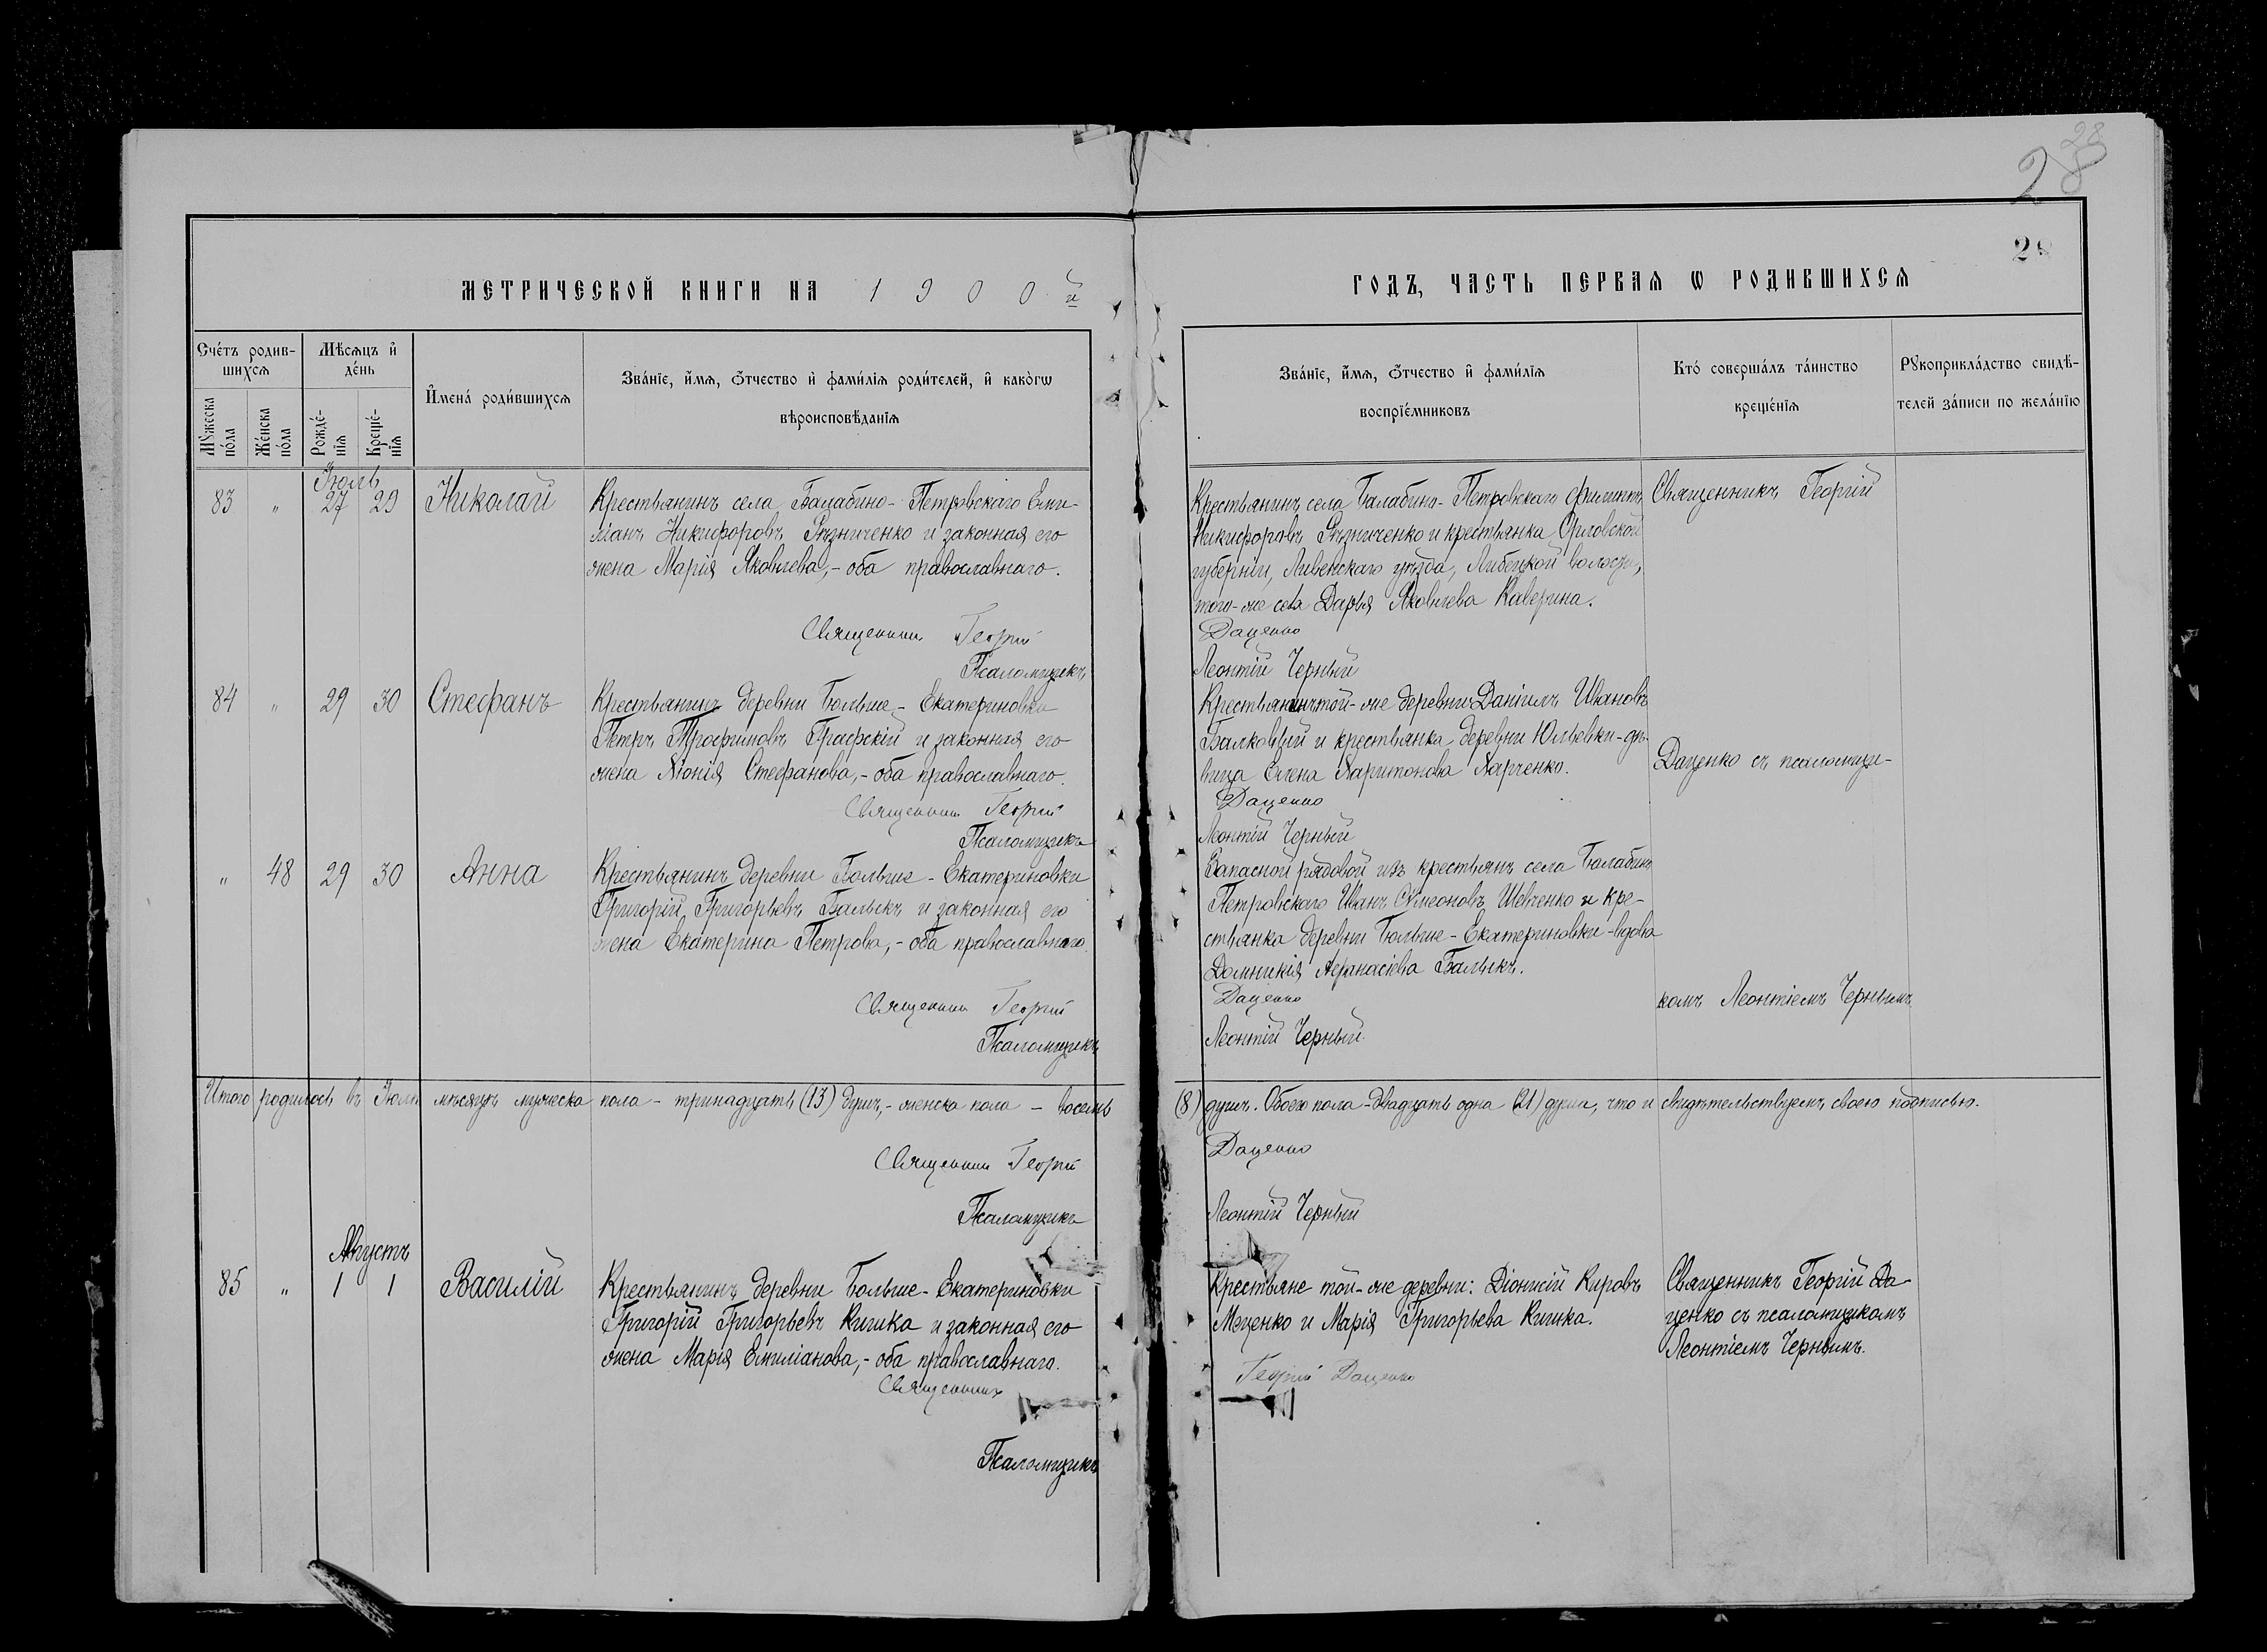 28
28
28
МЕТРИЧЕСКОЙ КНИГИ НА 1900й
ГОДЪ, ЧАСТЬ ПЕРВАЯ Ѡ РОДИВШИХСЯ
Счётъ родив-
шихся
Мѣсяцъ и
день
Имена родившихся
Званіе, имя, отчество и фамилія родителей, и какогѡ
вѣроисповѣданія
Мужеска
пола
Женска
пола
Рожде-
нія
Креще-
нія
Званіе, имя, отчество и фамилія
воспріемниковъ
Кто совершалъ таинство
крещенія
Рукоприкладство свидѣ-
телей записи по желанію
Іюль
83 " 27 29 Николай
Крестьянинъ села Балабино-Петровскаго Еми-
ліанъ Никифоровъ Рѣзниченко и законная его
жена Марія Яковлева,- оба православнаго.
Священник Георгій
Псаломщикъ
Крестьянинъ села Балабино-Петровскаго Филиппъ
Никифоровъ Рѣзниченко и крестьянка Орловской
губерніи, Ливенскаго уѣзда, волости,
того-же села Дарья Яковлева Каверина.
Даценко
Леонтій Черный
Священникъ Георгій
84 " 29 30 Стефанъ
Крестьянинъ деревни Больше-Екатериновки
Петръ Трофимовъ Графскій и законная его
жена Хіонія Стефанова,- оба православнаго.
Священник Георгій
Псаломщикъ
Крестьянинъ той-же деревни Даніилъ Ивановъ
и крестьянка деревни Юльевки-дѣ-
вица Елена Харитонова Харченко.
Даценко
Леонтій Черный
Даценко съ псаломщи-
" 48 29 30 Анна
Крестьянинъ деревни Больше-Екатериновки
Григорій Григорьевъ Балыкъ и законная его
жена Екатерина Петрова,- оба православнаго.
Священник Георгій
Псаломщикъ
Запасной рядовой изъ крестьянъ села Балабино
Петровскаго Иванъ Симеоновъ Шевченко и кре-
стьянка деревни Больше-Екатериновки-вдова
Домникія Афанасіева Балыкъ.
Даценко
Леонтій Черный.
комъ Леонтіемъ Чернымъ.
Итого родилось въ Іюлѣ мѣсяцѣ мужеска пола - тринадцать (13) душъ,- женска пола - восемь
(8) душъ. Обоего пола - двадцать одна (21) душа, что и свидѣтельствуемъ своею подписью.
Священник Георгій
Даценко
Псаломщикъ
Леонтій Черный
Августъ
85 " 1 1 Василій
Крестьянинъ деревни Больше-Екатериновки
Григорій Григорьевъ Кишка и законная его
жена Марія Емиліанова,- оба православнаго.
Священник
Псаломщикъ
Крестьяне той-же деревни: Діонисій Кировъ
Моценко и Марія Григорьева Кишка.
Георгій Даценко
Священникъ Георгій Да-
ценко съ псаломщикомъ
Леонтіемъ Чернымъ.